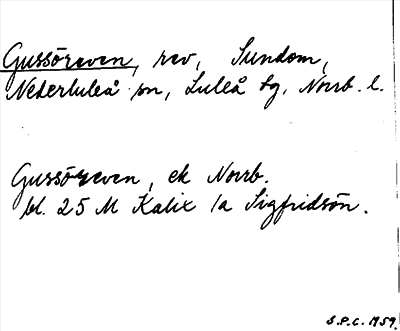 Gussöreven, rev, Sundom,
Nederluleå sn, Luleå tg, Norrb. l.
Gussöreven, ek Norrb.
bl. 25 M Kalix 1a Sigfridsön.
S.P.C. 1959.